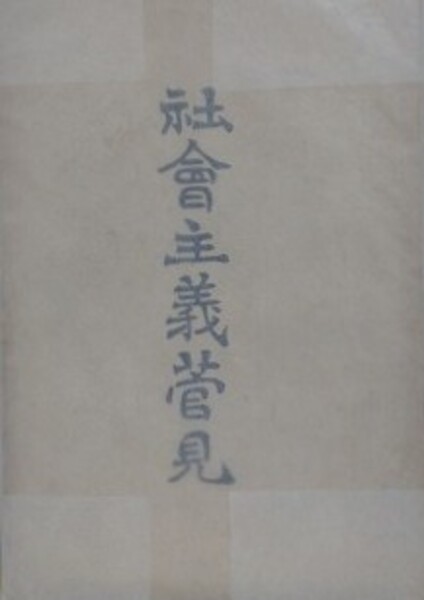 社會主義管見